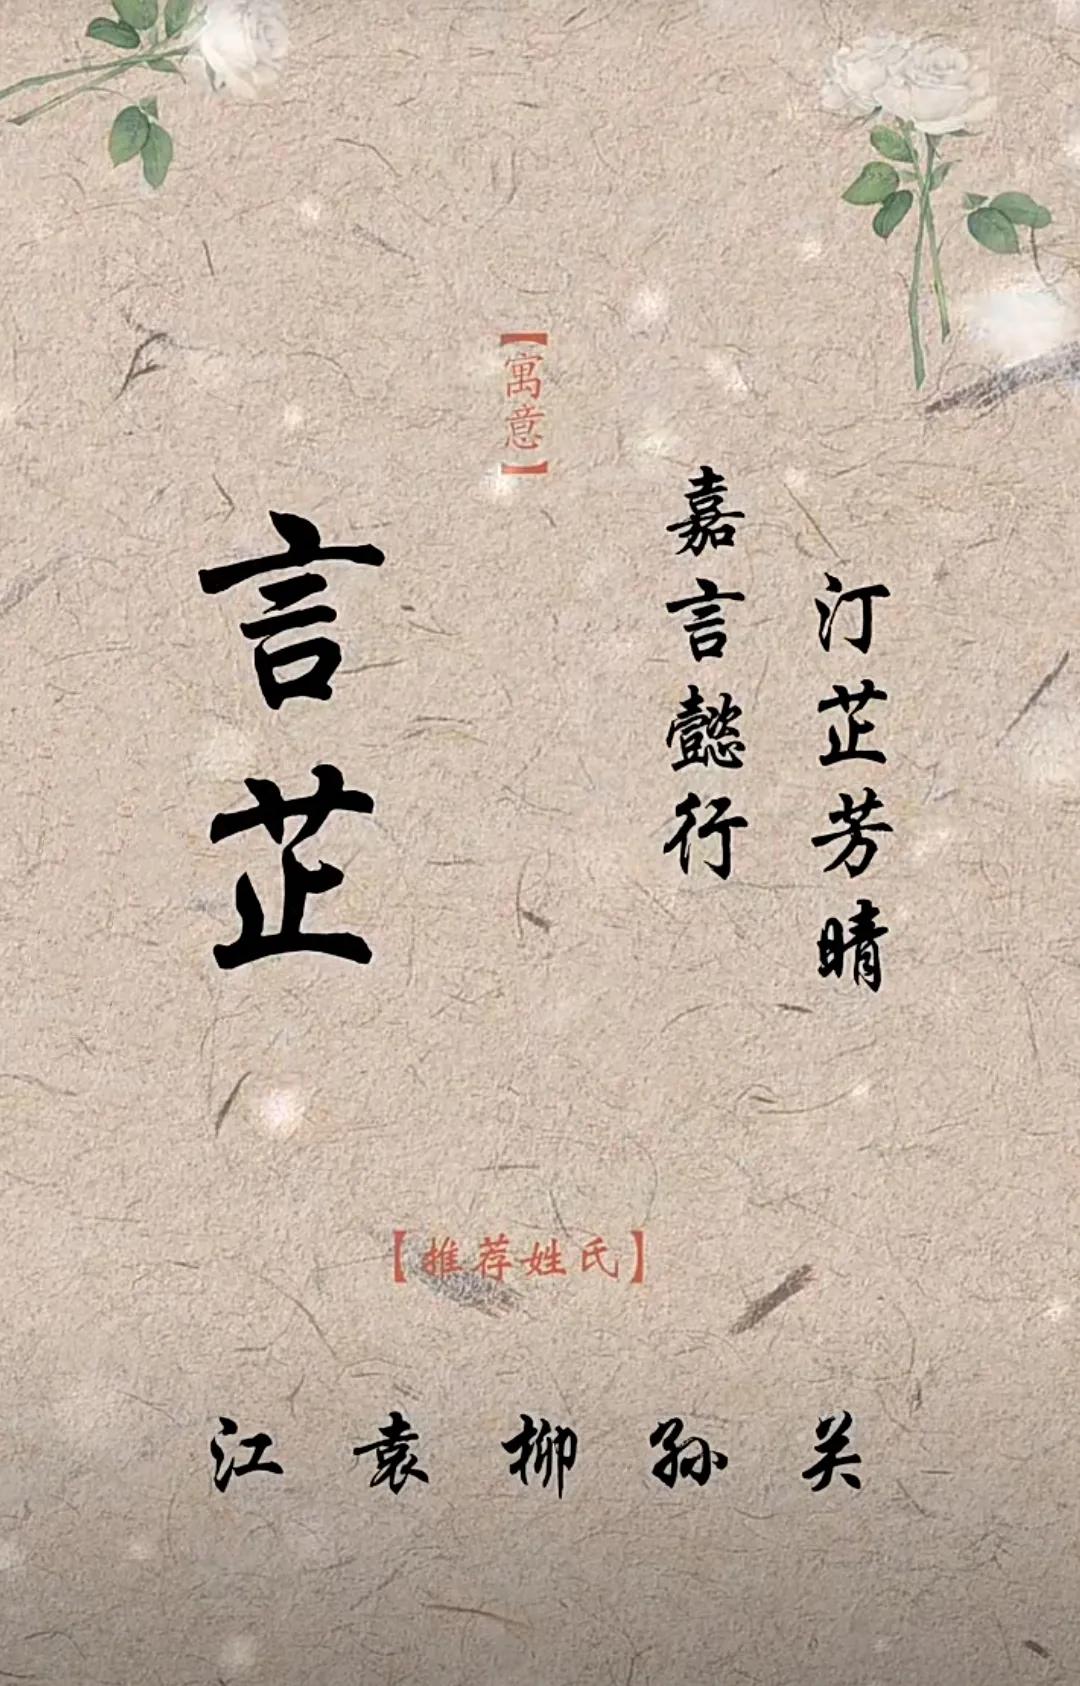 【寓意】
汀芷芳晴
嘉言懿行
言芷
【推荐姓氏】
江 袁 柳 孙 关